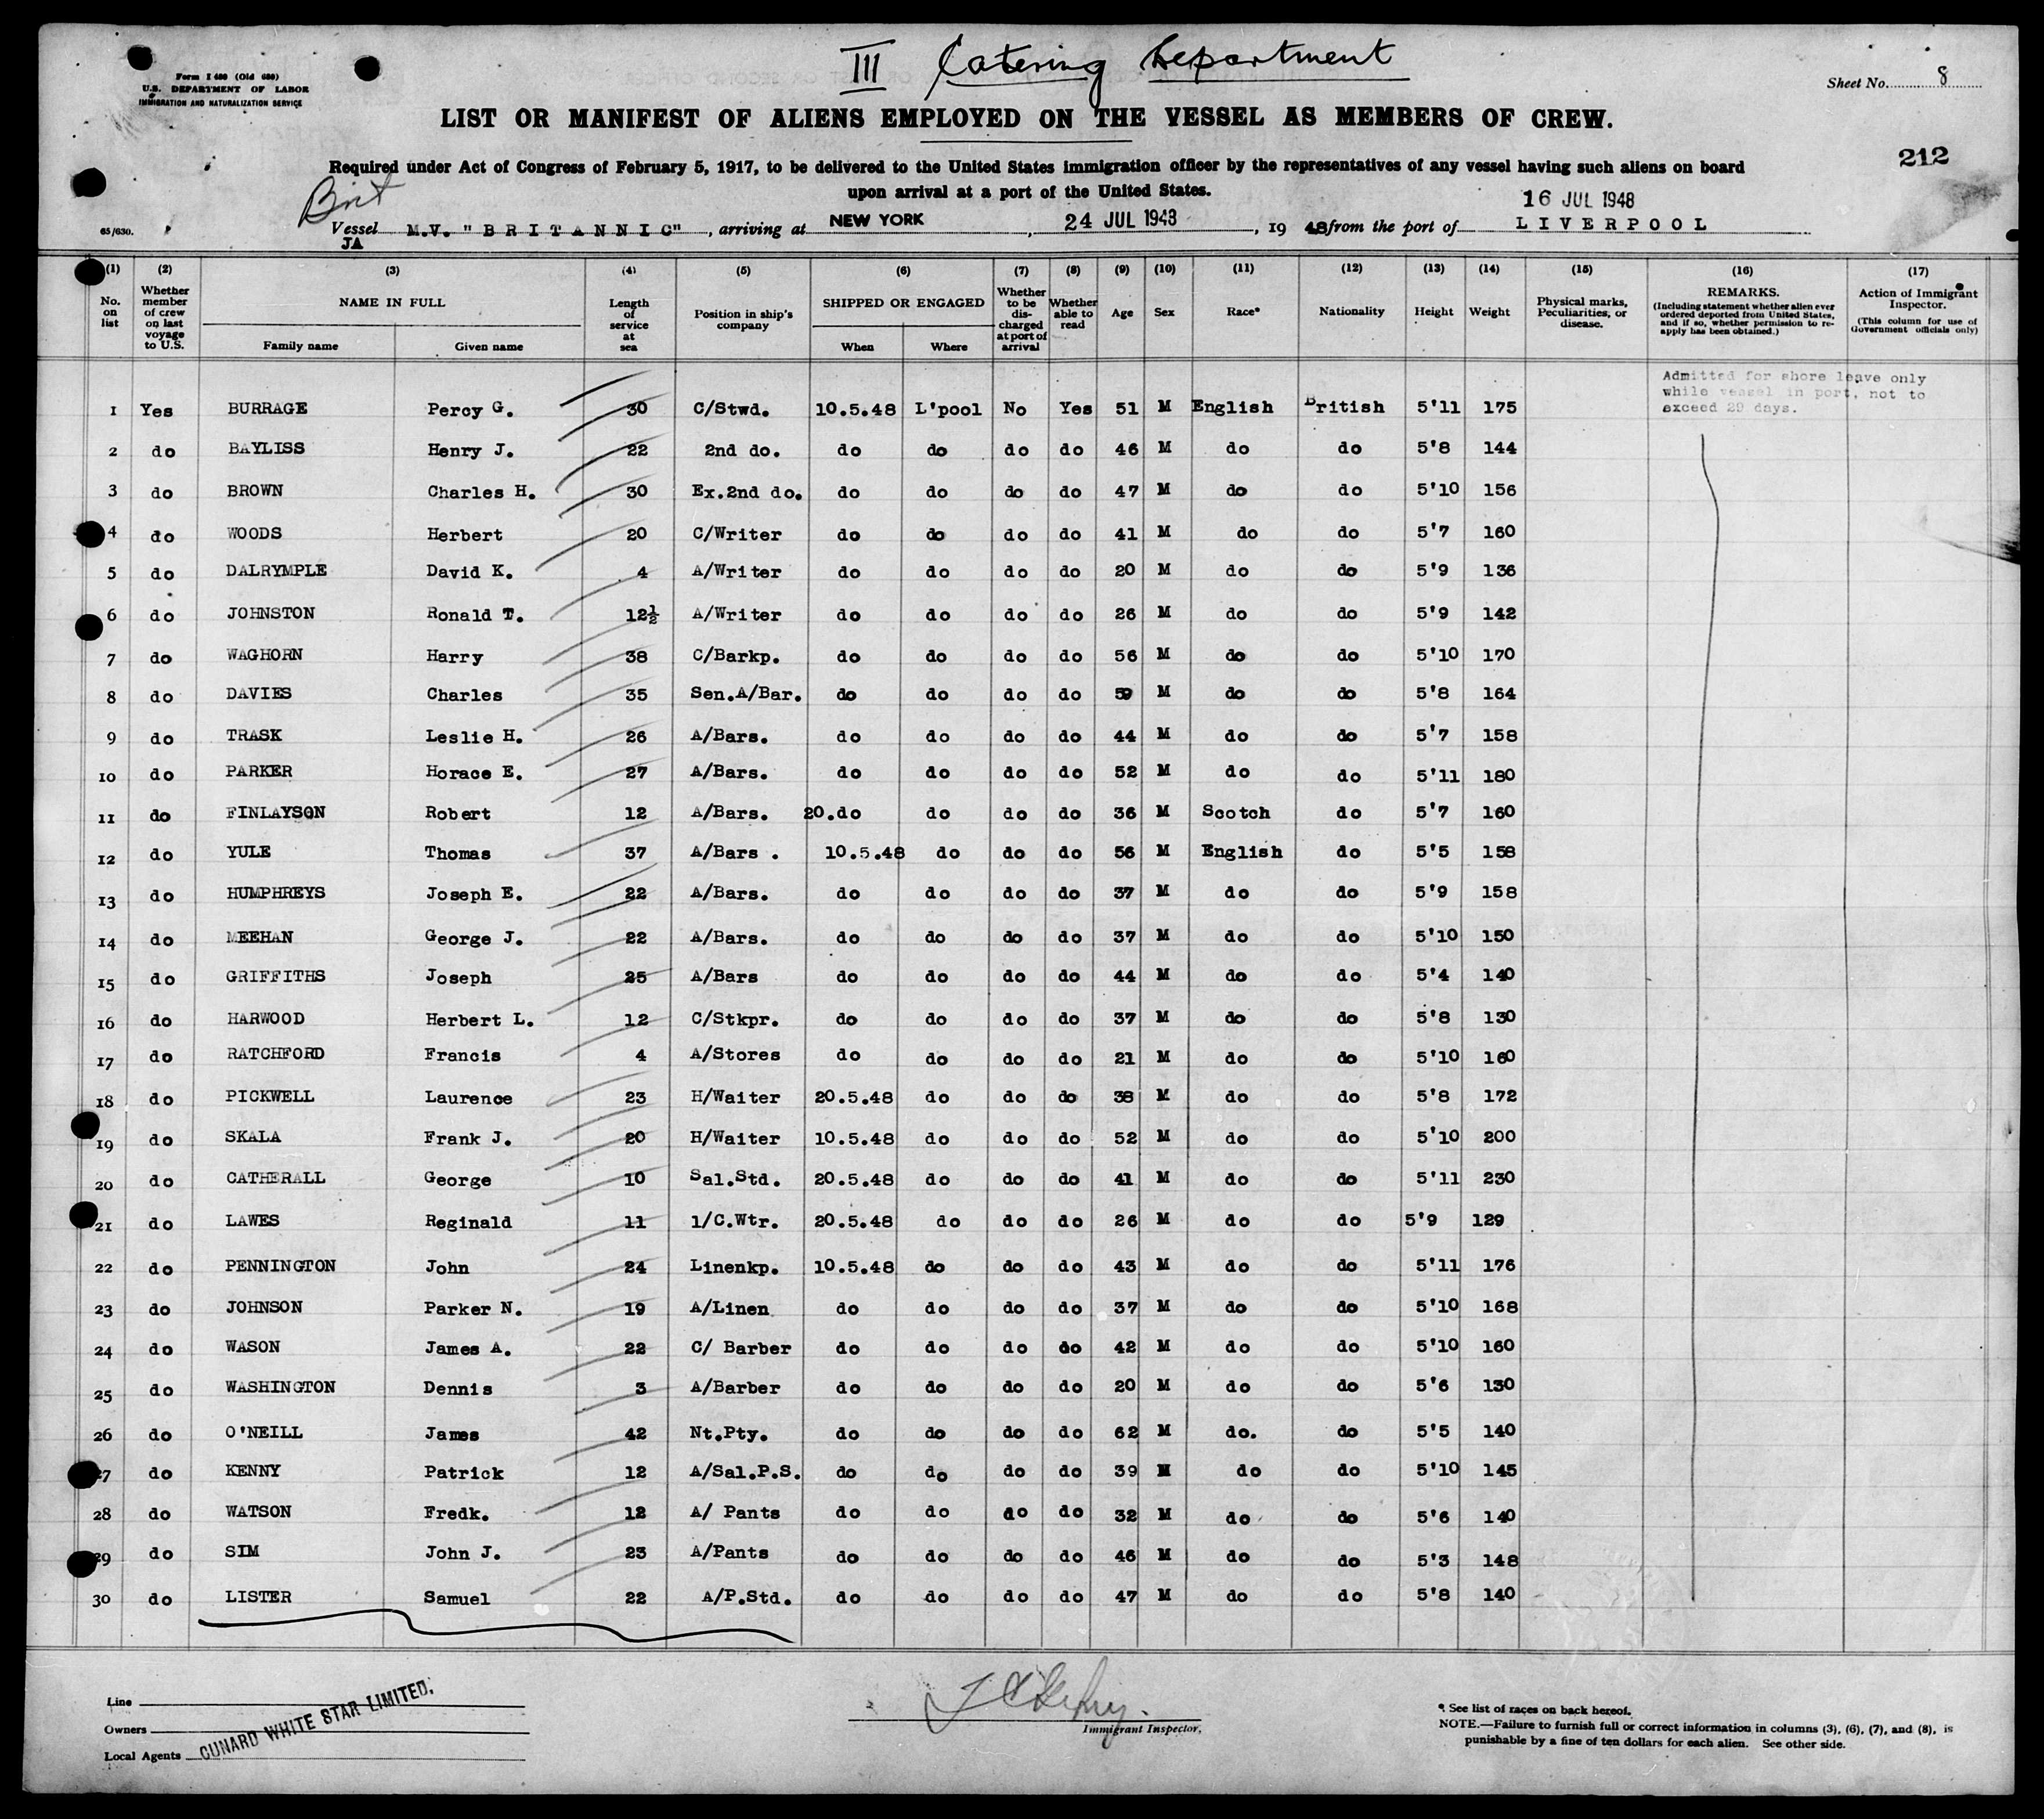 III Catering Department
Form I 480 (Old 680)
U.S. DEPARTMENT OF LABOR
IMMIGRATION AND NATURALIZATION SERVICE
Sheet No. 8
LIST OR MANIFEST OF ALIENS EMPLOYED ON THE VESSEL AS MEMBERS OF CREW.
212
Required under Act of Congress of February 5, 1917, to be delivered to the United States immigration officer by the representatives of any vessel having such aliens on board
upon arrival at a port of the United States.
Brit
16 JUL 1948
65/630. Vessel M.V. "BRITANNIC", arriving at NEW YORK, 24 JUL 1948, 19 48 from the port of LIVERPOOL
JA
(1) (2) (3) (4) (5) (6) (7) (8) (9) (10) (11) (12) (13) (14) (15) (16) (17)
No. on list
Whether member of crew on last voyage to U.S.
NAME IN FULL
Family name Given name
Length of service at sea
Position in ship's company
SHIPPED OR ENGAGED
When Where
Whether to be discharged at port of arrival
Whether able to read
Age
Sex
Race*
Nationality
Height
Weight
Physical marks, Peculiarities, or disease.
REMARKS.
(Including statement whether alien ever ordered deported from United States, and if so, whether permission to re-apply has been obtained.)
Action of Immigrant Inspector.
(This column for use of Government officials only)
Admitted for shore leave only
while vessel in port, not to
exceed 29 days.
1 Yes BURRAGE Percy G. 30 C/Stwd. 10.5.48 L'pool No Yes 51 M English British 5'11 175
2 do BAYLISS Henry J. 22 2nd do. do do do do 46 M do do 5'8 144
3 do BROWN Charles H. 30 Ex.2nd do. do do do do 47 M do do 5'10 156
4 do WOODS Herbert 20 C/Writer do do do do 41 M do do 5'7 160
5 do DALRYMPLE David K. 4 A/Writer do do do do 20 M do do 5'9 136
6 do JOHNSTON Ronald T. 12½ A/Writer do do do do 26 M do do 5'9 142
7 do WAGHORN Harry 38 C/Barkp. do do do do 56 M do do 5'10 170
8 do DAVIES Charles 35 Sen.A/Bar. do do do do 59 M do do 5'8 164
9 do TRASK Leslie H. 26 A/Bars. do do do do 44 M do do 5'7 158
10 do PARKER Horace E. 27 A/Bars. do do do do 52 M do do 5'11 180
11 do FINLAYSON Robert 12 A/Bars. 20.do do do do 36 M Scotch do 5'7 160
12 do YULE Thomas 37 A/Bars . 10.5.48 do do do 56 M English do 5'5 158
13 do HUMPHREYS Joseph E. 22 A/Bars. do do do do 37 M do do 5'9 158
14 do MEEHAN George J. 22 A/Bars. do do do do 37 M do do 5'10 150
15 do GRIFFITHS Joseph 25 A/Bars do do do do 44 M do do 5'4 140
16 do HARWOOD Herbert L. 12 C/Stkpr. do do do do 37 M do do 5'8 130
17 do RATCHFORD Francis 4 A/Stores do do do do 21 M do do 5'10 160
18 do PICKWELL Laurence 23 H/Waiter 20.5.48 do do do 38 M do do 5'8 172
19 do SKALA Frank J. 20 H/Waiter 10.5.48 do do do 52 M do do 5'10 200
20 do CATHERALL George 10 Sal.Std. 20.5.48 do do do 41 M do do 5'11 230
21 do LAWES Reginald 11 1/C.Wtr. 20.5.48 do do do 26 M do do 5'9 129
22 do PENNINGTON John 24 Linenkp. 10.5.48 do do do 43 M do do 5'11 176
23 do JOHNSON Parker N. 19 A/Linen do do do do 37 M do do 5'10 168
24 do WASON James A. 22 C/ Barber do do do do 42 M do do 5'10 160
25 do WASHINGTON Dennis 3 A/Barber do do do do 20 M do do 5'6 130
26 do O'NEILL James 42 Nt.Pty. do do do do 62 M do. do 5'5 140
27 do KENNY Patrick 12 A/Sal.P.S. do do do do 39 M do do 5'10 145
28 do WATSON Fredk. 12 A/ Pants do do do do 32 M do do 5'6 140
29 do SIM John J. 23 A/Pants do do do do 46 M do do 5'3 148
30 do LISTER Samuel 22 A/P.Std. do do do do 47 M do do 5'8 140
Line
Owners
Local Agents
CUNARD WHITE STAR LIMITED.
Immigrant Inspector.
* See list of races on back hereof.
NOTE.—Failure to furnish full or correct information in columns (3), (6), (7), and (8), is
punishable by a fine of ten dollars for each alien. See other side.